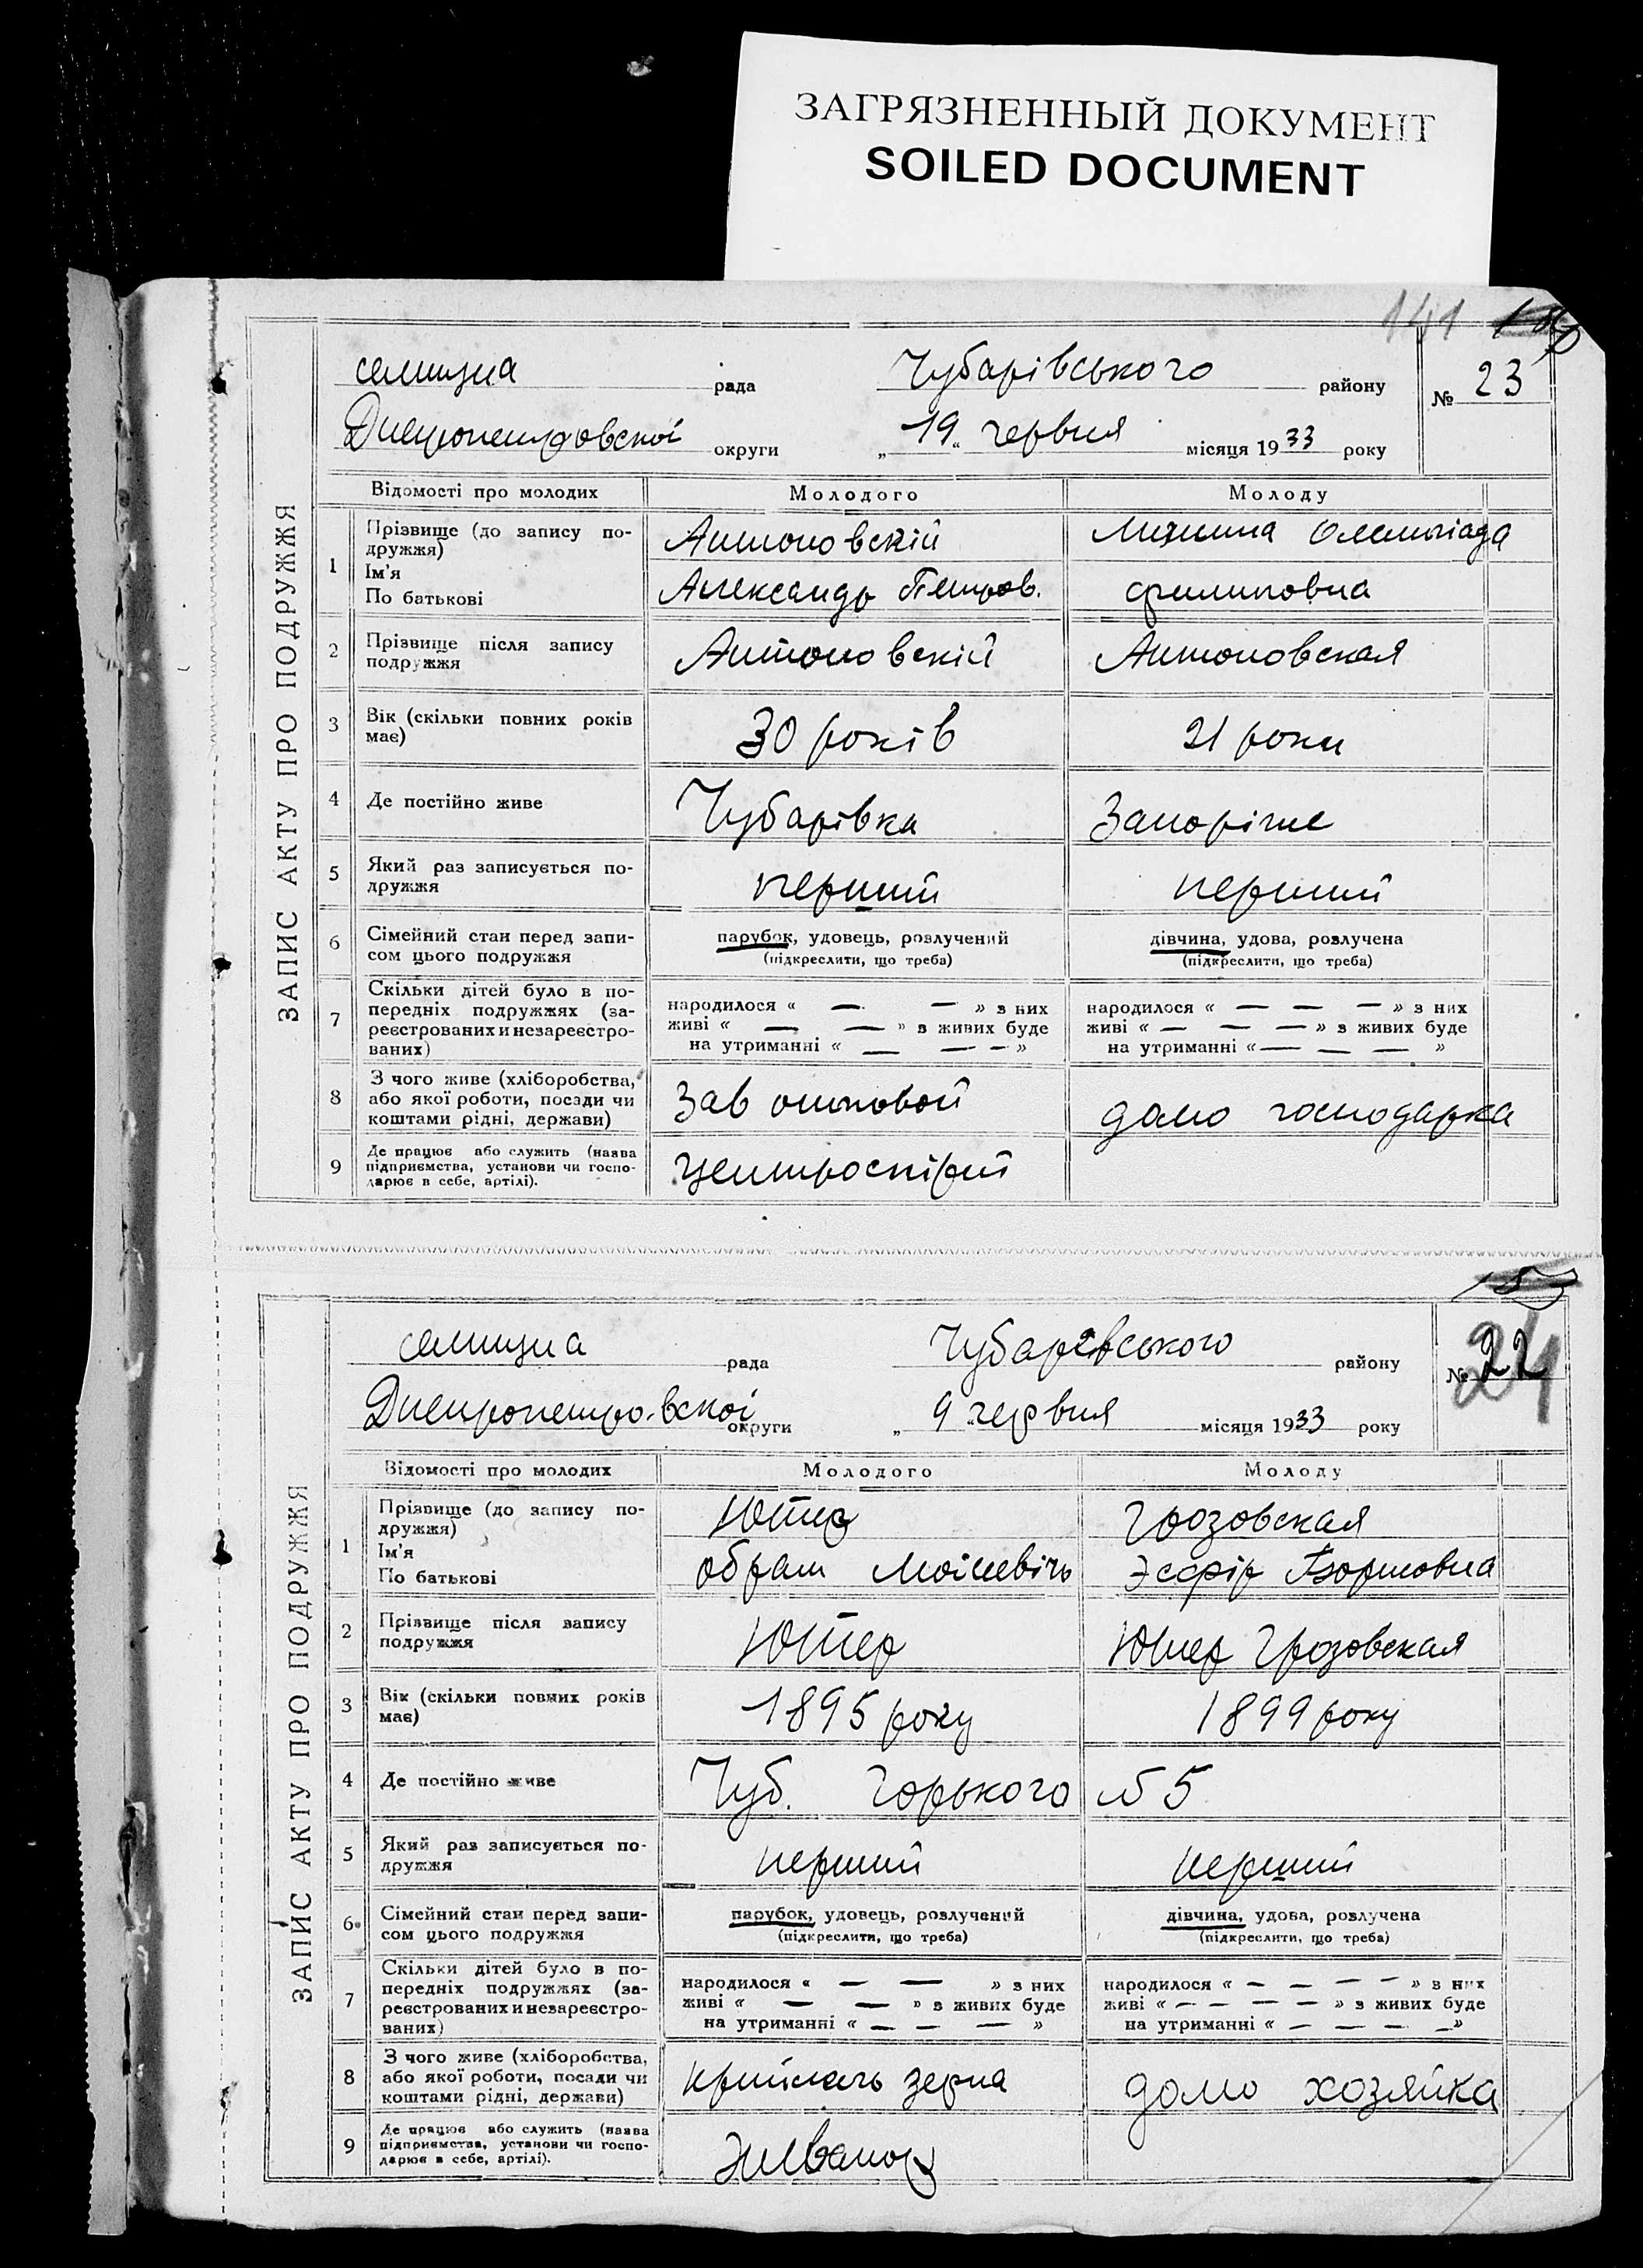 ЗАГРЯЗНЕННЫЙ ДОКУМЕНТ
SOILED DOCUMENT
141
ЗАПИС АКТУ ПРО ПОДРУЖЖЯ
селищна рада Чубарівського району № 23
округи „19“ червня місяця 1933 року
Відомості про молодих Молодого Молоду
1 Прізвище (до запису по-
дружжя)
Ім'я
По батькові
Антоновскій
Александр Петров.
Олемпіада
Филиповна
2 Прізвище після запису
подружжя
Антоновскій Антоновская
3 Вік (скільки повних років
має)
30 років 21 роки
4 Де постійно живе Чубарівка Запоріже
5 Який раз записується по-
дружжя
перший перший
6 Сімейний стан перед запи-
сом цього подружжя
парубок, удовець, розлучений дівчина, удова, розлучена
(підкреслити, що треба) (підкреслити, що треба)
7 Скільки дітей було в по-
передніх подружжях (за-
реєстрованих и незареєстро-
ваних)
народилося « — — » з них народилося « — — — » з них
живі « — — » з живих буде живі « — — — » з живих буде
на утриманні « — — — » на утриманні « — — — »
8 З чого живе (хліборобства,
або якої роботи, посади чи
коштами рідні, держави)
Зав оптовой домо господарка
9 Де працює або служить (назва
підприємства, установи чи госпо-
дарює в себе, артілі).
Центроспірт
ЗАПИС АКТУ ПРО ПОДРУЖЖЯ
селищна рада Чубарівського району № 22
24
округи „9“ червня місяця 1933 року
Відомості про молодих Молодого Молоду
1 Прізвище (до запису по-
дружжя)
Ім'я
По батькові
Грозовская
Обрам Моісевічь Эсфір Борисовна
2 Прізвище після запису
подружжя
Ютер Ютер Грозовская
3 Вік (скільки повних років
має)
1895 року 1899 року
4 Де постійно живе Чуб. Горького № 5
5 Який раз записується по-
дружжя
перший перший
6 Сімейний стан перед запи-
сом цього подружжя
парубок, удовець, розлучений дівчина, удова, розлучена
(підкреслити, що треба) (підкреслити, що треба)
7 Скільки дітей було в по-
передніх подружжях (за-
реєстрованих и незареєстро-
ваних)
народилося « — — » з них народилося « — — — — » з них
живі « — — » з живих буде живі « — — — — » з живих буде
на утриманні « — — — » на утриманні « — — — — »
8 З чого живе (хліборобства,
або якої роботи, посади чи
коштами рідні, держави)
зерна домо хозяйка
9 Де працює або служить (назва
підприємства, установи чи госпо-
дарює в себе, артілі).